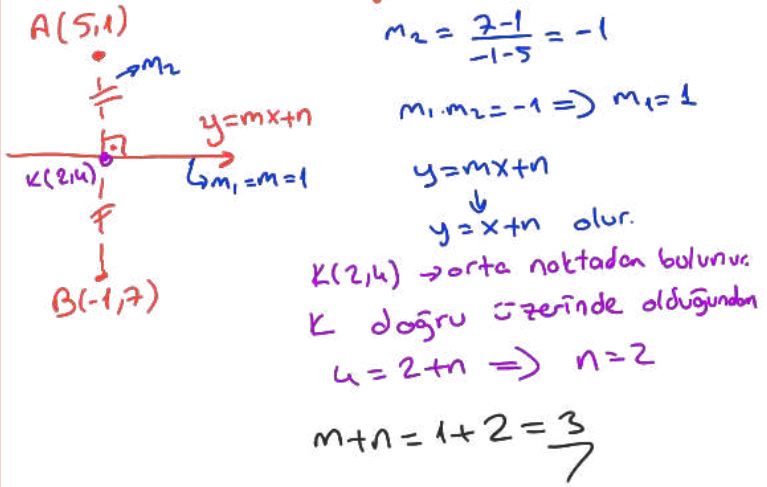 A(5,1)
m₂
y=mx+n
K(2,4)
m₁=m=1
B(-1,7)
m₂ = 7-1/-1-5 = -1
m₁.m₂=-1 => m₁=1
y=mx+n
↓
y=x+n olur.
K(2,4) →orta noktadan bulunur.
K doğru üzerinde olduğundan
4=2+n => n=2
m+n=1+2=3